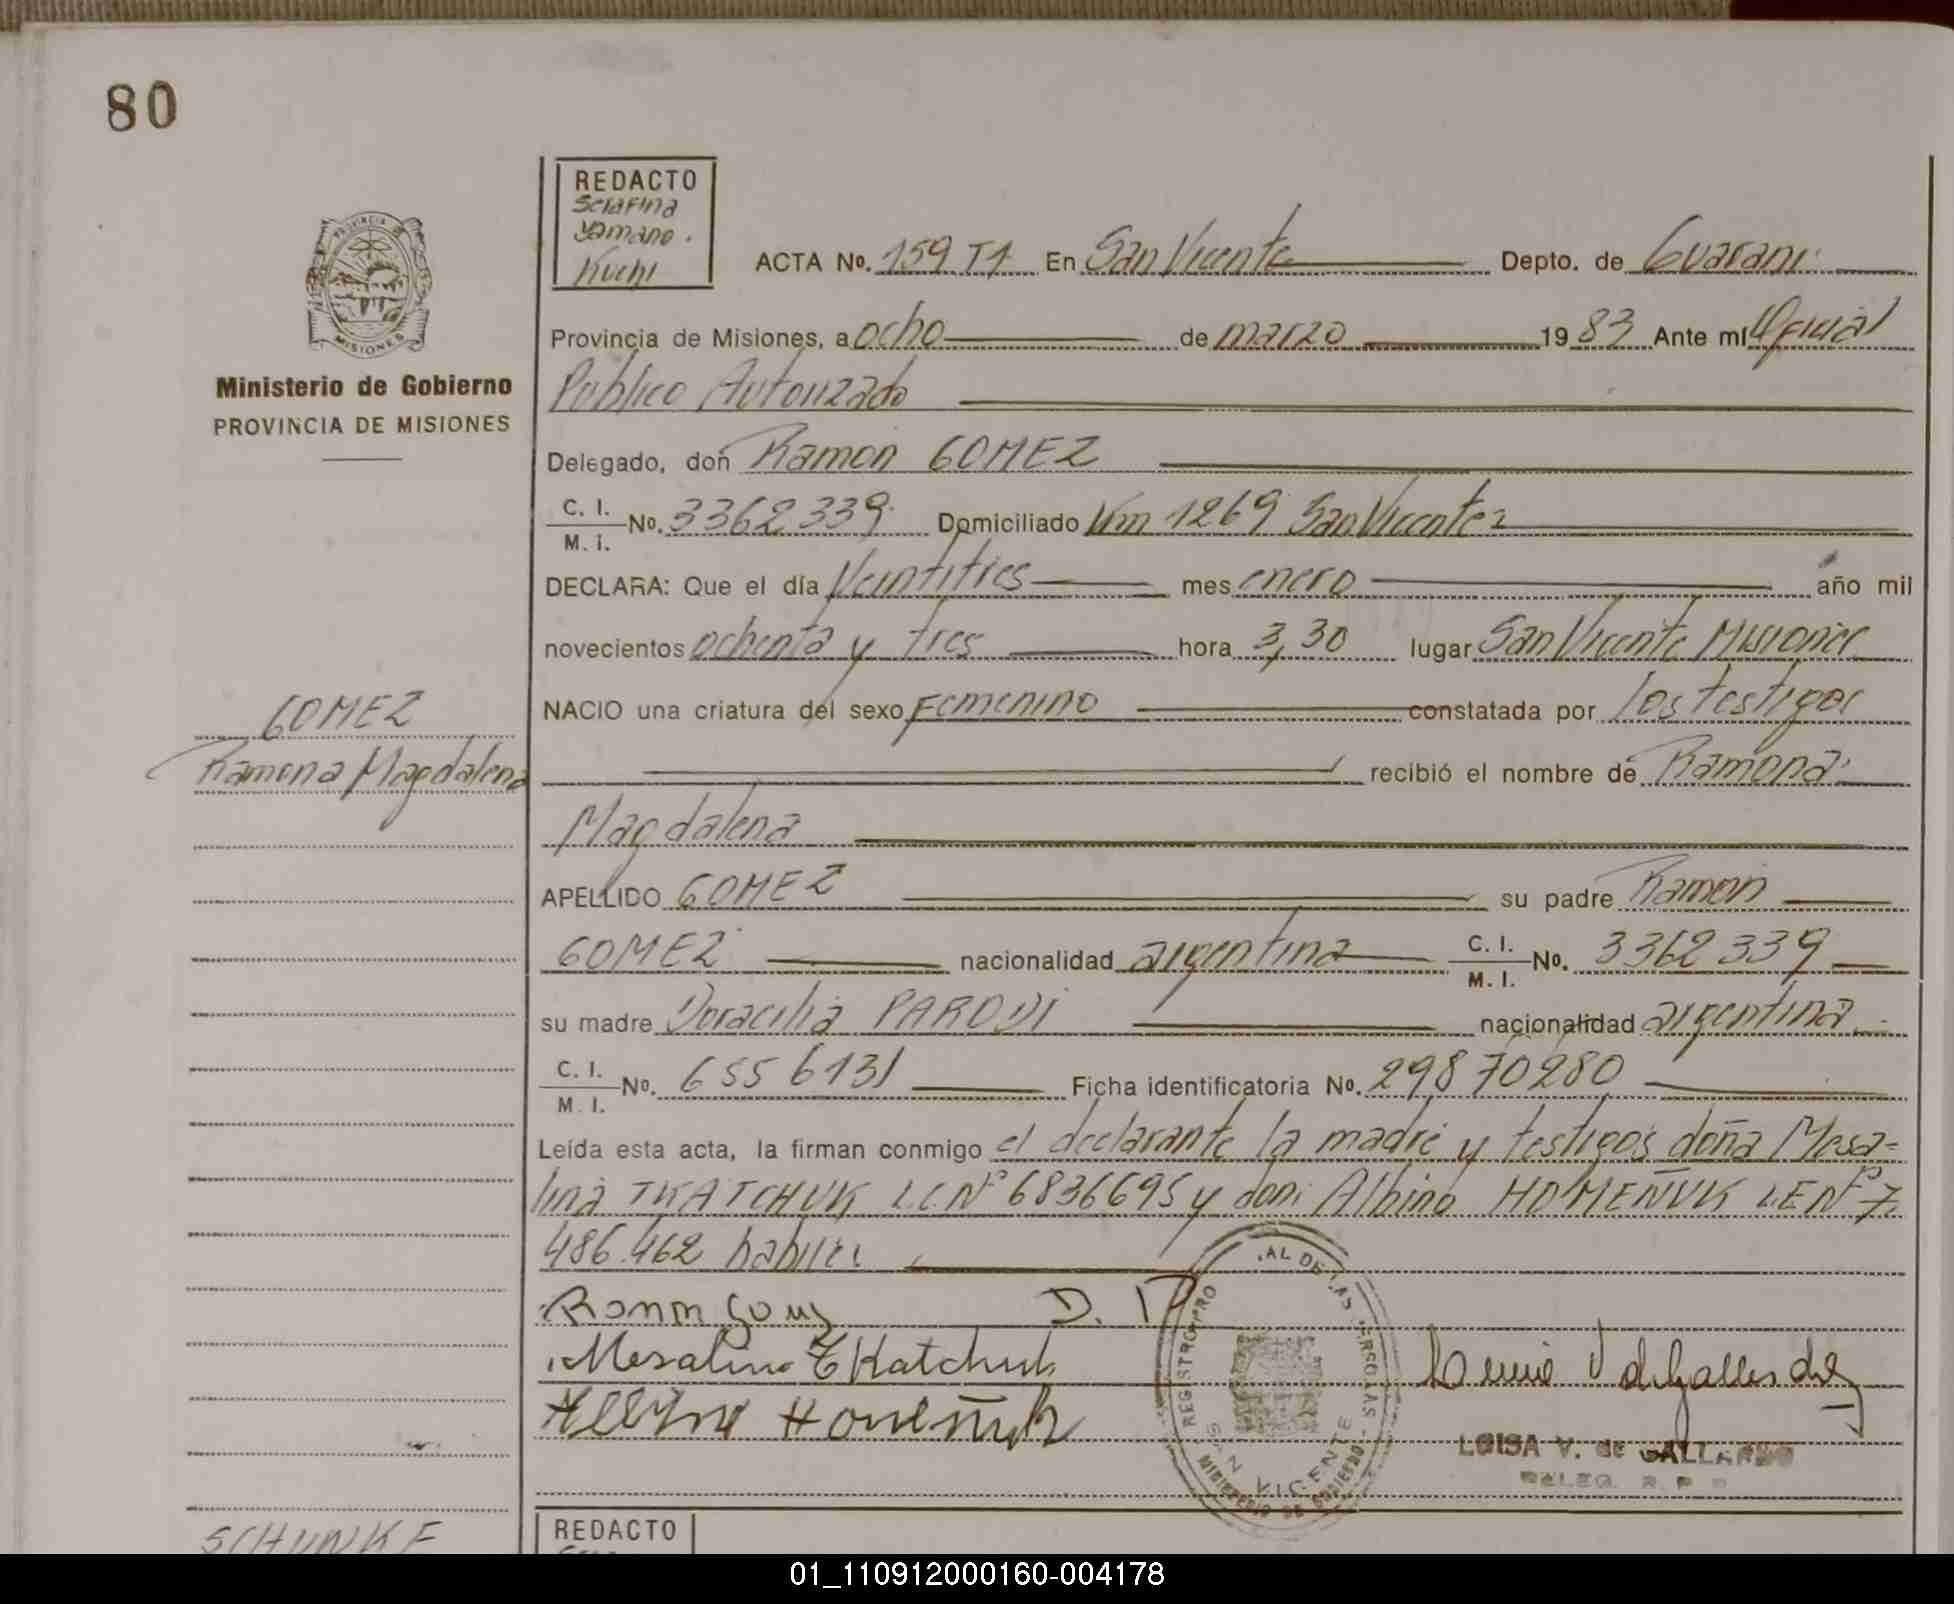 80
REDACTO
Serafina
Yamano.
Kuchi
ACTA No. 159 T1 En San Vicente Depto. de Guarani
Provincia de Misiones, a ocho de marzo 1983 Ante mí Oficial
Público Autorizado
Delegado, don Ramon GOMEZ
C. I.
M. I. No. 3362339 Domiciliado Km 1269 San Vicente
DECLARA: Que el día Veintitres mes enero año mil
novecientos ochenta y tres hora 3,30 lugar San Vicente Misiones
NACIO una criatura del sexo Femenino constatada por los testigos
recibió el nombre de Ramona
Magdalena
APELLIDO GOMEZ su padre Ramon
GOMEZ nacionalidad argentina C. I.
M. I. No. 3362339
su madre Doracilia PARODI nacionalidad argentina
C. I.
M. I. No. 6556131 Ficha identificatoria No. 29870280
Leída esta acta, la firman conmigo el declarante la madre y testigos doña Mesa=
lina TKATCHUK L.C.Nº 6836695 y don: Albino HOMEÑUK L.E Nº 7.
486.462 habiles
D. P
Mesalina TKatchuk
REGISTRO PRO AL DE LAS PERSONAS
SAN VICENTE
MINISTERIO DE GOBIERNO
LUISA V. de GALLARDO
DELEG. R. P.
Ministerio de Gobierno
PROVINCIA DE MISIONES
PROVINCIA
MISIONES
GOMEZ
Ramona Magdalena
SCHUNKE
REDACTO
01_110912000160-004178